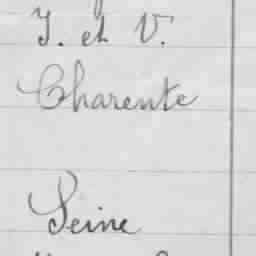 I. et V.
Charente
Seine